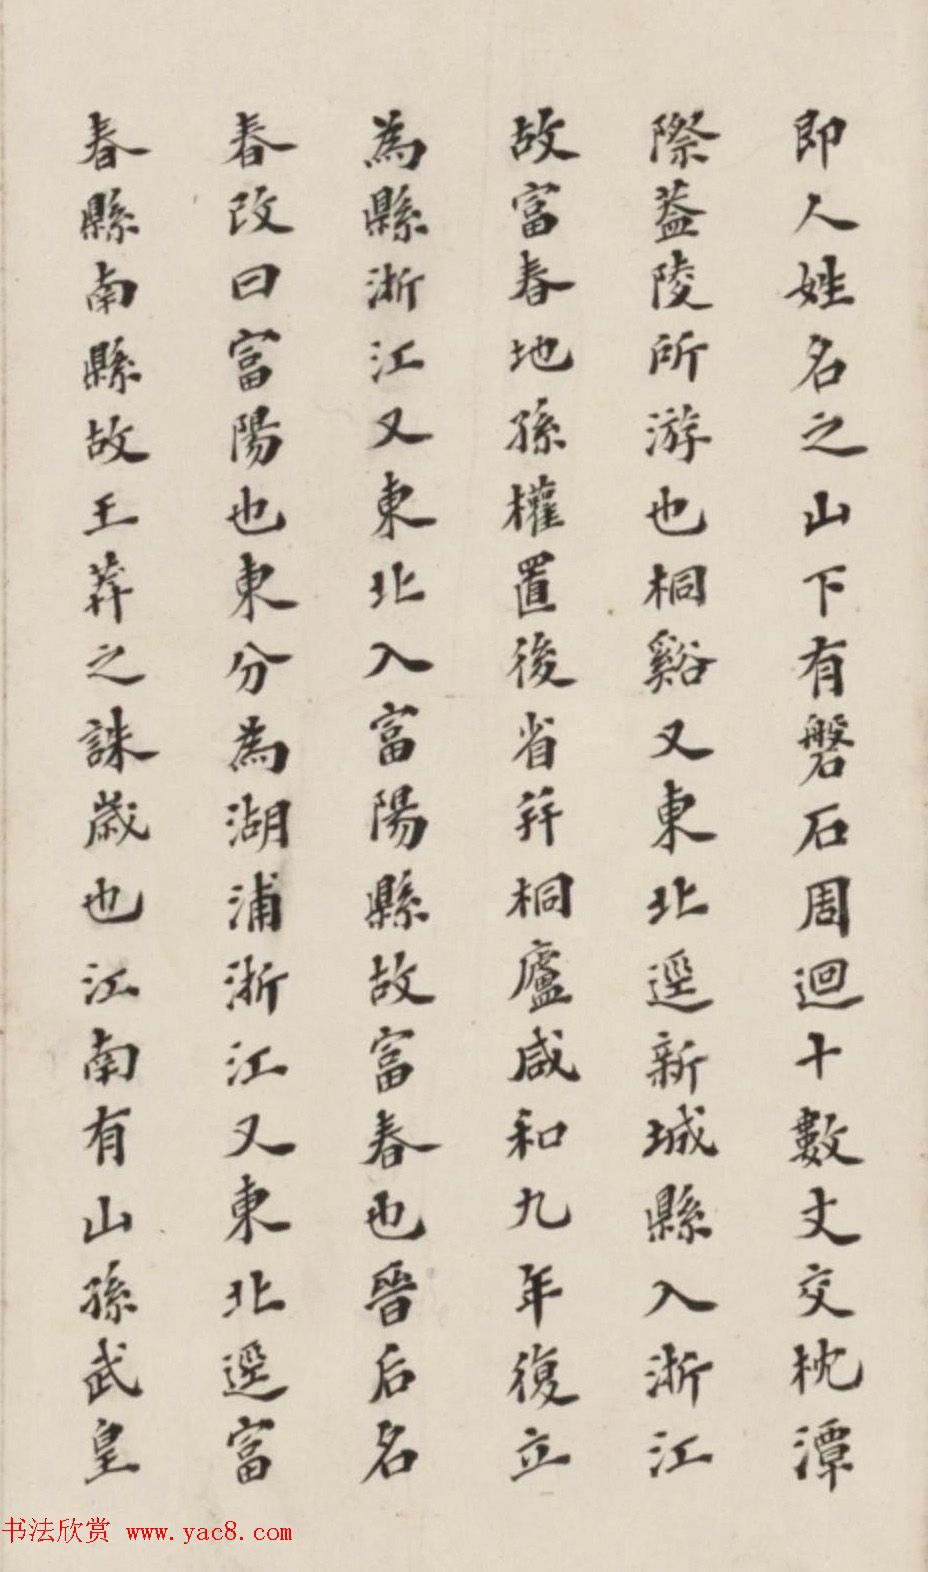 即人姓名之山下有磐石周迴十數丈交枕潭
際葢陵所游也桐谿又東北逕新城縣入浙江
故富春地孫權置後省并桐廬咸和九年復立
為縣浙江又東北入富陽縣故富春也晉后名
春改曰富陽也東分為湖浦浙江又東北逕富
春縣南縣故王莽之誅歲也江南有山孫武皇
书法欣赏 www.yac8.com